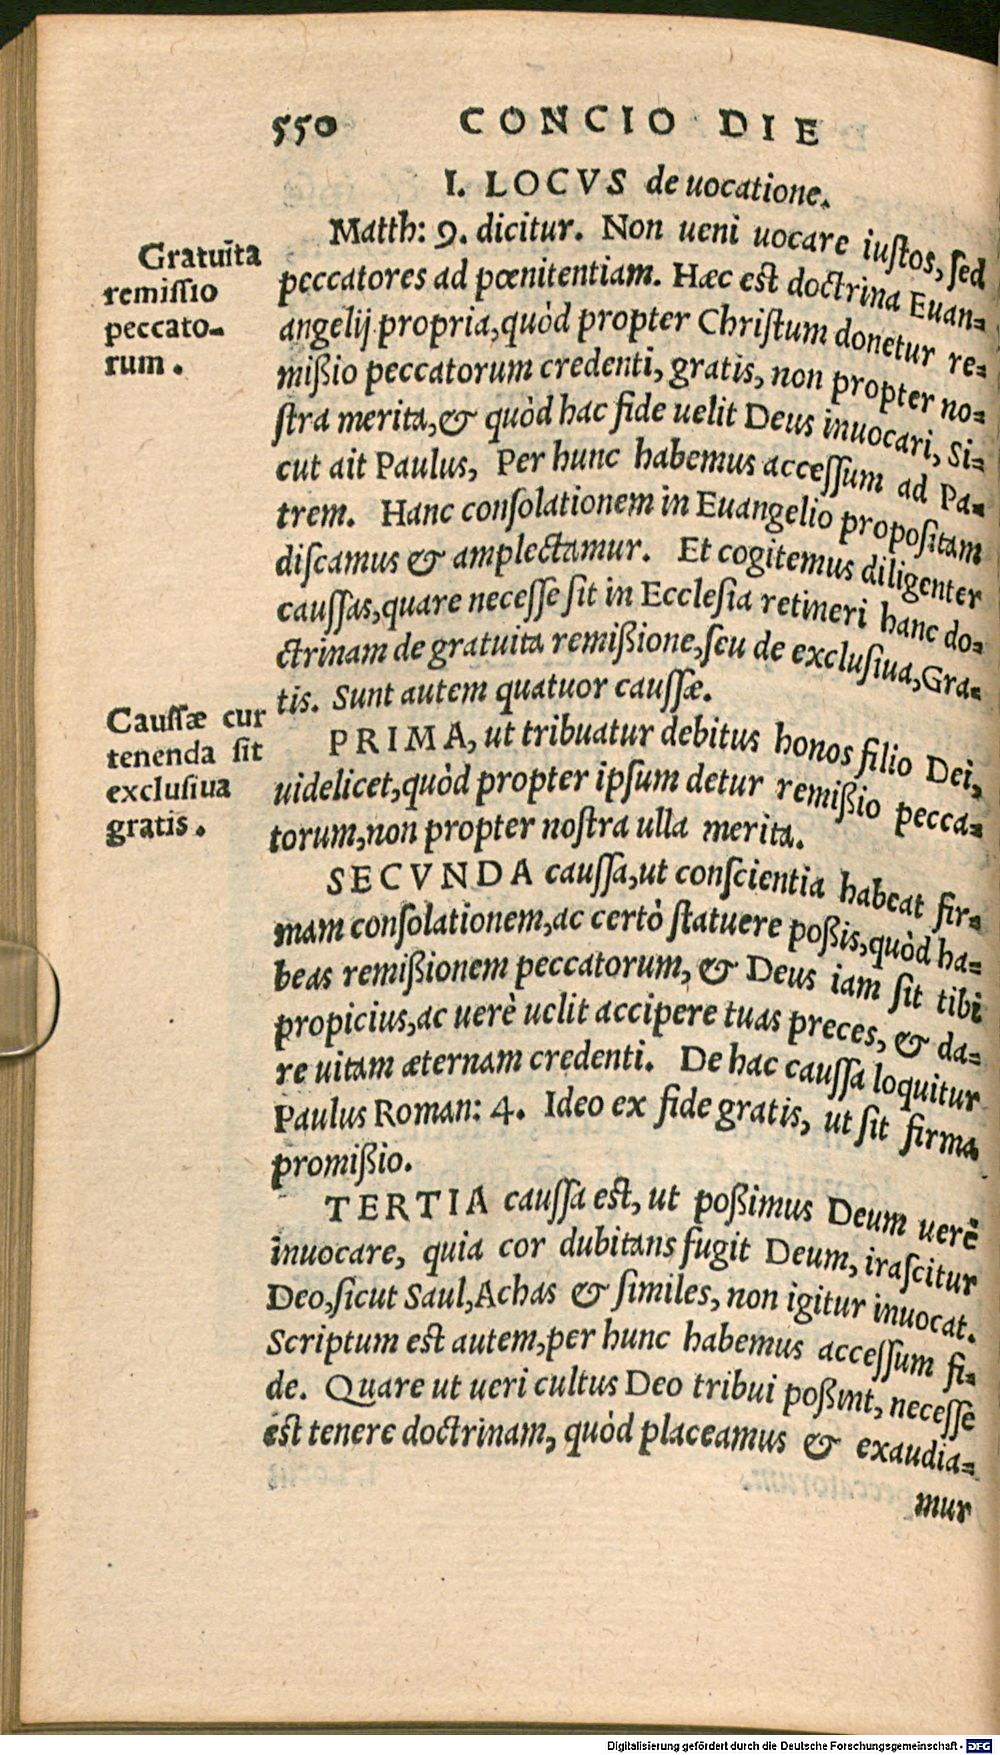 550 CONCIO DIE
I. LOCVS de uocatione.
Gratuita
remissio
peccato-
rum.
Matth: 9. dicitur. Non ueni uocare iustos, sed
peccatores ad pœnitentiam. Hæc est doctrina Euan-
angelij propria, quòd propter Christum donetur re-
mißio peccatorum credenti, gratis, non propter no-
stra merita, & quòd hac fide uelit Deus inuocari, Si-
cut ait Paulus, Per hunc habemus accessum ad Pa-
trem. Hanc consolationem in Euangelio propositam
discamus & amplectamur. Et cogitemus diligenter
caussas, quare necesse sit in Ecclesia retineri hanc do-
ctrinam de gratuita remißione, seu de exclusiua, Gra-
tis. Sunt autem quatuor caussæ.
Caussæ cur
tenenda sit
exclusiua
gratis.
PRIMA, ut tribuatur debitus honos filio Dei,
uidelicet, quòd propter ipsum detur remißio pecca-
torum, non propter nostra ulla merita.
SECVNDA caussa, ut conscientia habeat fir-
mam consolationem, ac certò statuere poßis, quòd ha-
beas remißionem peccatorum, & Deus iam sit tibi
propicius, ac uerè uelit accipere tuas preces, & da-
re uitam æternam credenti. De hac caussa loquitur
Paulus Roman: 4. Ideo ex fide gratis, ut sit firma
promißio.
TERTIA caussa est, ut poßimus Deum uerè
inuocare, quia cor dubitans fugit Deum, irascitur
Deo, sicut Saul, Achas & similes, non igitur inuocat.
Scriptum est autem, per hunc habemus accessum fi-
de. Quare ut ueri cultus Deo tribui poßint, necesse
est tenere doctrinam, quòd placeamus & exaudia-
mur
Digitalisierung gefördert durch die Deutsche Forschungsgemeinschaft - DFG